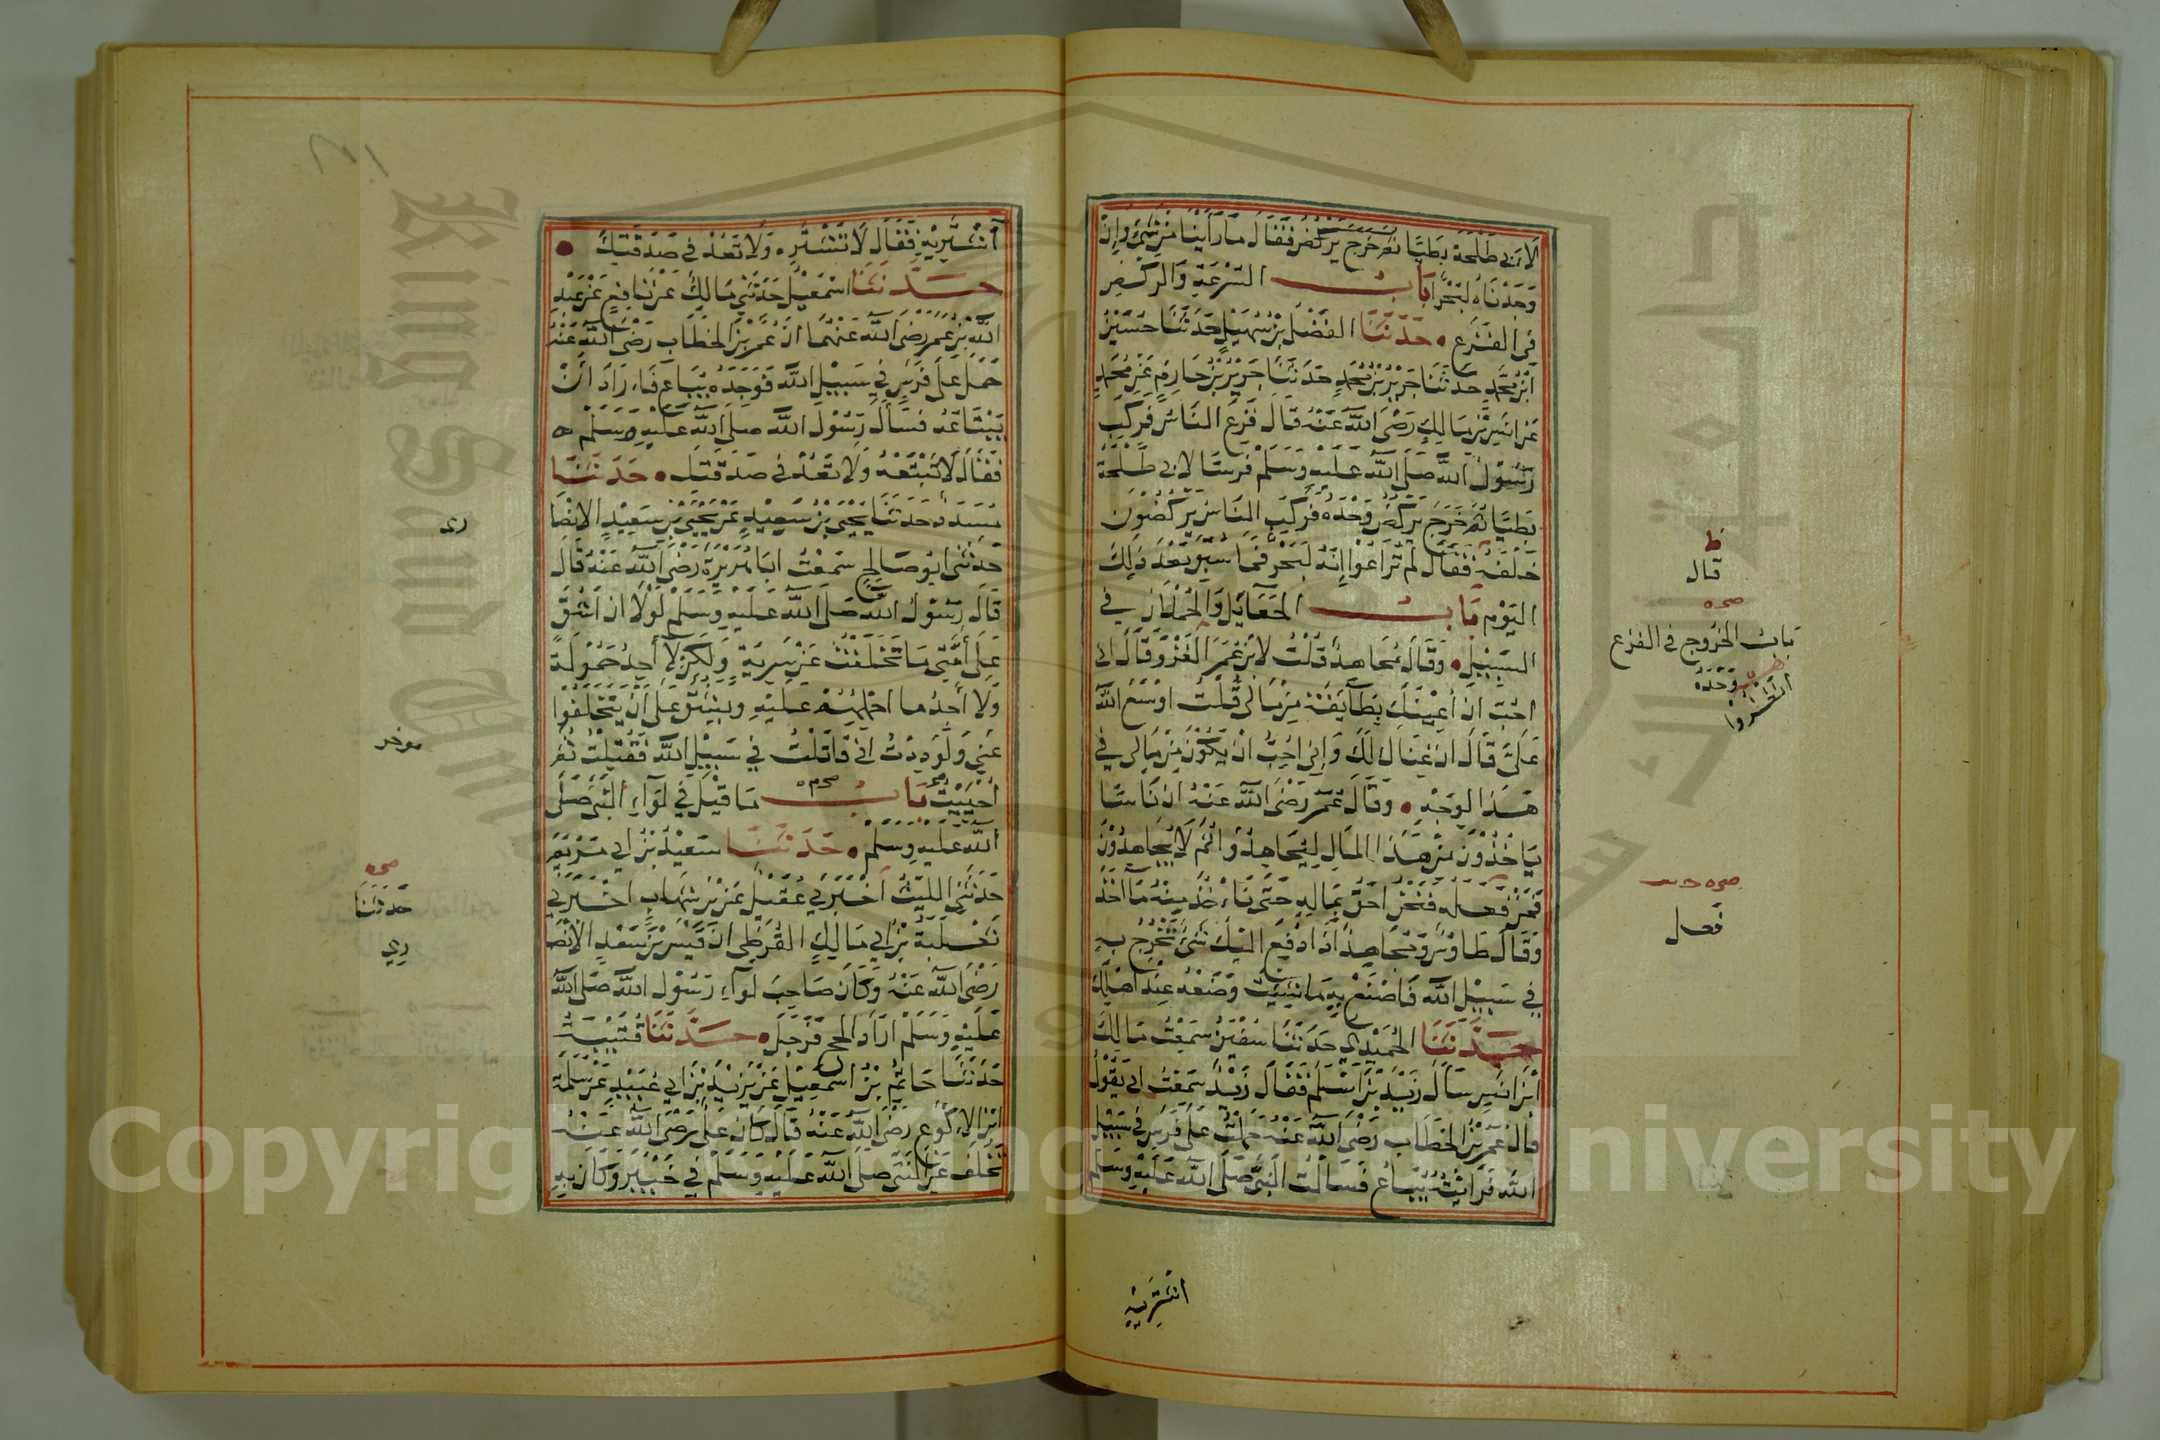 لِأَبِي طَلْحَةَ بَطِيًّا ثُمَّ خَرَجَ يَرْكُضُ فَقَالَ مَا رَأَيْنَا مِنْ شَيْءٍ وَإِنْ
وَجَدْنَاهُ لَبَحْرًا بَابُ السُّرْعَةِ وَالرَّكْضِ
فِي الفَزَعِ • حَدَّثَنَا الفَضْلُ بْنُ سُهَيْلٍ حَدَّثَنَا حُسَيْنُ
ابْنُ مُحَمَّدٍ حَدَّثَنَا جَرِيرُ بْنُ حَازِمٍ عَنْ مُحَمَّدٍ
عَنْ أَنَسِ بْنِ مَالِكٍ رَضِيَ اللَّهُ عَنْهُ قَالَ فَزِعَ النَّاسُ فَرَكِبَ
رَسُولُ اللَّهِ صَلَّى اللَّهُ عَلَيْهِ وَسَلَّمَ فَرَسًا لِأَبِي طَلْحَةَ
بَطِيًّا ثُمَّ خَرَجَ يَرْكُضُ وَحْدَهُ فَرَكِبَ النَّاسُ يَرْكُضُونَ
خَلْفَهُ فَقَالَ لَمْ تُرَاعُوا إِنَّهُ لَبَحْرٌ فَمَا سُبِقَ بَعْدَ ذَلِكَ
اليَوْمِ بَابُ الجَعَايِلِ وَالحُمْلَانِ فِي
السَّبِيلِ • وَقَالَ مُجَاهِدٌ قُلْتُ لِابْنِ عُمَرَ الغَزْوَ قَالَ إِنِّي
أُحِبُّ أَنْ أُعِينَكَ بِطَائِفَةٍ مِنْ مَالِي قُلْتُ أَوْسَعَ اللَّهُ
عَلَيَّ قَالَ إِنَّ غِنَاكَ لَكَ وَإِنِّي أُحِبُّ أَنْ يَكُونَ مِنْ مَالِي فِي
هَذَا الوَجْهِ • وَقَالَ عُمَرُ رَضِيَ اللَّهُ عَنْهُ إِنَّ نَاسًا
يَأْخُذُونَ مِنْ هَذَا المَالِ لِيُجَاهِدُوا ثُمَّ لَا يُجَاهِدُونَ
فَمَنْ فَعَلَهُ فَنَحْنُ أَحَقُّ بِمَالِهِ حَتَّى نَأْخُذَ مِنْهُ مَا أَخَذَ
وَقَالَ طَاوُسٌ وَمُجَاهِدٌ إِذَا دُفِعَ إِلَيْكَ شَيْءٌ تَخْرُجُ بِهِ
فِي سَبِيلِ اللَّهِ فَاصْنَعْ بِهِ مَا شِئْتَ وَضَعْهُ عِنْدَ أَهْلِكَ
حَدَّثَنَا الحُمَيْدِيُّ حَدَّثَنَا سُفْيَنُ سَمِعْتُ مَالِكَ
ابْنَ أَنَسٍ سَأَلَ زَيْدَ بْنَ أَسْلَمَ فَقَالَ زَيْدٌ سَمِعْتُ أَبِي يَقُولُ
قَالَ عُمَرُ بْنُ الخَطَّابِ رَضِيَ اللَّهُ عَنْهُ حَمَلْتُ عَلَى فَرَسٍ فِي سَبِيلِ
اللَّهِ فَرَأَيْتُهُ يُبَاعُ فَسَأَلْتُ النَّبِيَّ صَلَّى اللَّهُ عَلَيْهِ وَسَلَّمَ
ط
قَالَ
صح
بَابُ الخُرُوجِ فِي الفَزَعِ
وَحْدَهُ
صح
فَعَلَ
اشْتَرِيهِ
اشْتَرِيهِ فَقَالَ لَا تَشْتَرِهِ وَلَا تَعُدْ فِي صَدَقَتِكَ •
حَدَّثَنَا اسْمَعِيلُ حَدَّثَنِي مَالِكٌ عَنْ نَافِعٍ عَنْ عَبْدِ
اللَّهِ بْنِ عُمَرَ رَضِيَ اللَّهُ عَنْهُمَا أَنَّ عُمَرَ بْنَ الخَطَّابِ رَضِيَ اللَّهُ عَنْهُ
حَمَلَ عَلَى فَرَسٍ فِي سَبِيلِ اللَّهِ فَوَجَدَهُ يُبَاعُ فَأَرَادَ أَنْ
يَبْتَاعَهُ فَسَأَلَ رَسُولَ اللَّهِ صَلَّى اللَّهُ عَلَيْهِ وَسَلَّمَ
فَقَالَ لَا تَبْتَعْهُ وَلَا تَعُدْ فِي صَدَقَتِكَ • حَدَّثَنَا
مُسَدَّدٌ حَدَّثَنَا يَحْيَى بْنُ سَعِيدٍ عَنْ يَحْيَى بْنِ سَعِيدٍ الانْصَا
رى
حَدَّثَنِي أَبُو صَالِحٍ سَمِعْتُ أَبَا هُرَيْرَةَ رَضِيَ اللَّهُ عَنْهُ قَالَ
قَالَ رَسُولُ اللَّهِ صَلَّى اللَّهُ عَلَيْهِ وَسَلَّمَ لَوْلَا أَنْ أَشُقَّ
عَلَى أُمَّتِي مَا تَخَلَّفْتُ عَنْ سَرِيَّةٍ وَلَكِنْ لَا أَجِدُ حَمُولَةً
وَلَا أَجِدُ مَا أَحْمِلُهُمْ عَلَيْهِ وَيَشُقُّ عَلَيَّ أَنْ يَتَخَلَّفُوا
عَنِّي وَلَوَدِدْتُ أَنِّي قَاتَلْتُ فِي سَبِيلِ اللَّهِ فَقُتِلْتُ ثُمَّ
موخر
أُحْيِيتُ بَابُ مَا قِيلَ فِي لِوَاءِ النَّبِيِّ صَلَّى
اللَّهُ عَلَيْهِ وَسَلَّمَ • حَدَّثَنَا سَعِيدُ بْنُ أَبِي مَرْيَمَ
حَدَّثَنِي اللَّيْثُ أَخْبَرَنِي عُقَيْلٌ عَنِ ابْنِ شِهَابٍ أَخْبَرَنِي
صح
حَدَّثَنَا
ثَعْلَبَةُ بْنُ أَبِي مَالِكٍ القُرَظِيُّ أَنَّ قَيْسَ بْنَ سَعْدٍ الانْصَا
رى
رَضِيَ اللَّهُ عَنْهُ وَكَانَ صَاحِبَ لِوَاءِ رَسُولِ اللَّهِ صَلَّى اللَّهُ
عَلَيْهِ وَسَلَّمَ أَرَادَ الحَجَّ فَرَجَّلَ • حَدَّثَنَا قُتَيْبَةُ
حَدَّثَنَا حَاتِمُ بْنُ اسْمَعِيلَ عَنْ يَزِيدَ بْنِ أَبِي عُبَيْدٍ عَنْ سَلَمَةَ
ابْنِ الأَكْوَعِ رَضِيَ اللَّهُ عَنْهُ قَالَ كَانَ عَلِيٌّ رَضِيَ اللَّهُ عَنْهُ
تَخَلَّفَ عَنِ النَّبِيِّ صَلَّى اللَّهُ عَلَيْهِ وَسَلَّمَ فِي خَيْبَرَ وَكَانَ بِهِ
King Saud University
Copyright © King Saud University